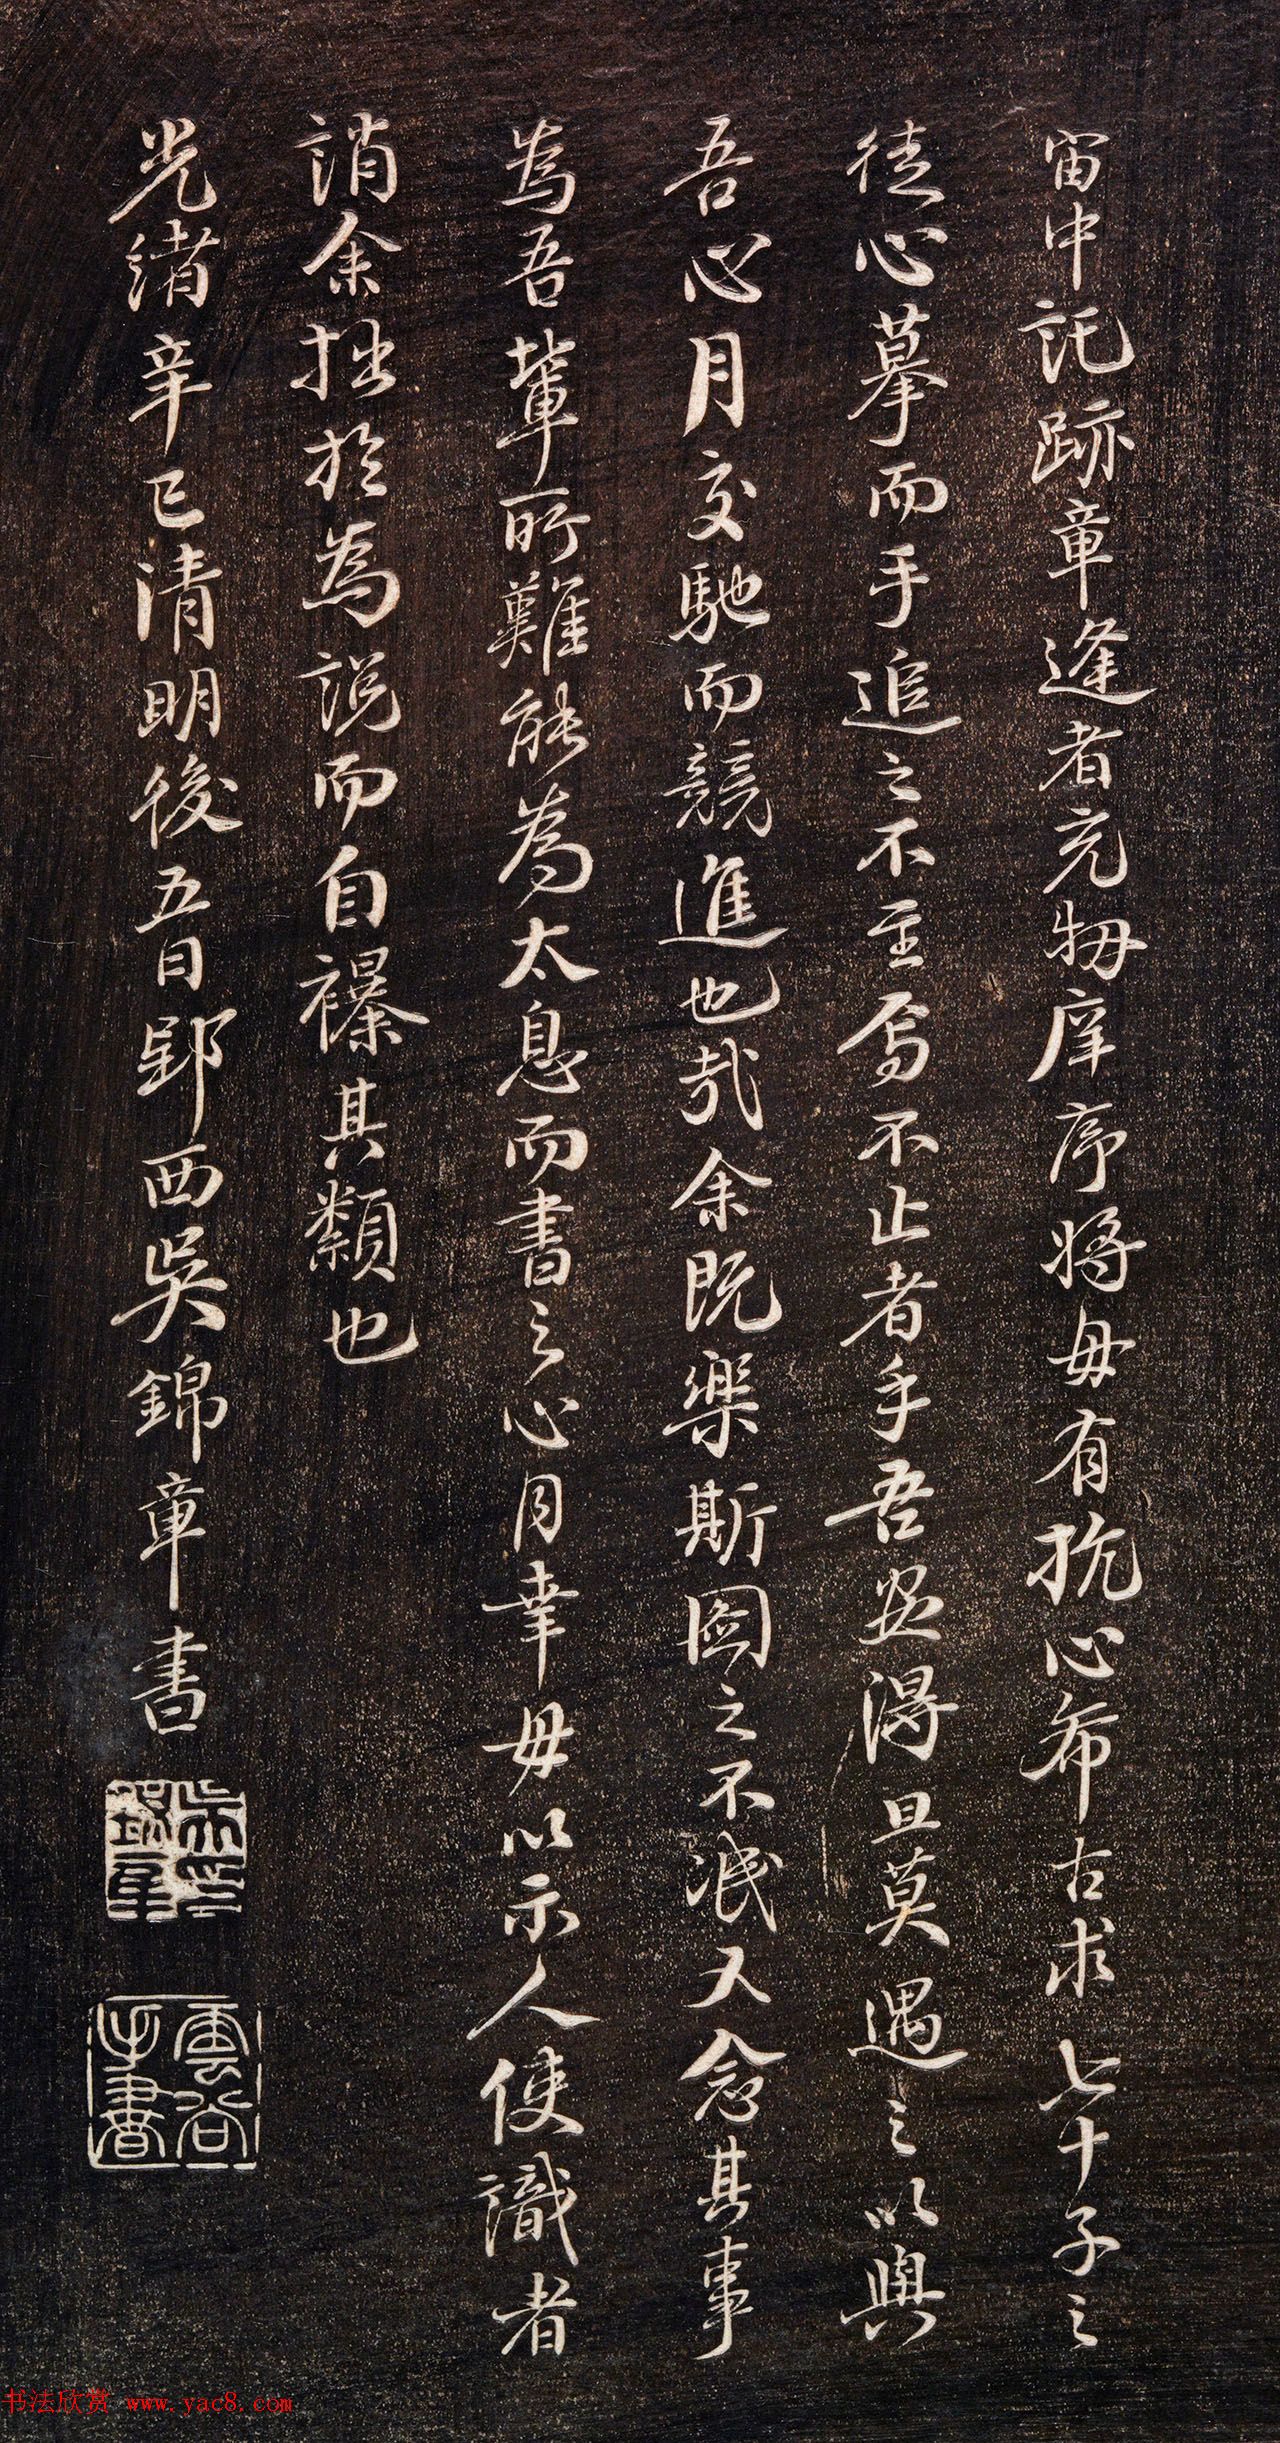 宙中託跡章逢者充牣庠序將毋有抗心希古求七十子之
徒心摹而手追之不至焉不止者乎吾安得旦莫遇之以與
吾心月交馳而競進也哉余既樂斯圖之不泯又念其事
為吾輩所難能為太息而書之心月幸毋以示人使識者
誚余拙於為說而自襮其纇也
光緒辛巳清明後五日郢西吳錦章書
雲谷手書
书法欣赏 www.yac8.com